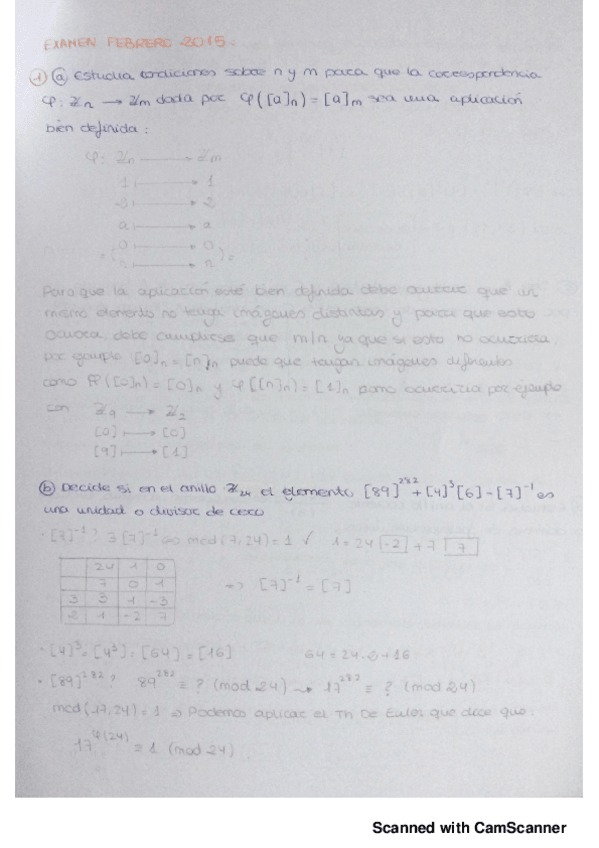 EXAMEN FEBRERO 2015.
1 a Estudia condiciones sobre n y m para que la correspondencia
φ: ℤn → ℤm dada por φ([a]n) = [a]m sea una aplicación
bien definida:
φ: ℤn → ℤm
1 → 1
2 → 2
a → a
=(0 → 0)=
n → n
Para que la aplicación esté bien definida debe ocurrir que un
mismo elemento no tenga imágenes distintas y para que esto
ocurra, debe cumplirse que m|n ya que si esto no ocurriera
por ejemplo [0]n = [n]n puede que tengan imágenes diferentes
como φ([0]n) = [0]n y φ([n]n) = [1]n como ocurriría por ejemplo
con ℤ9 → ℤ2
[0] → [0]
[9] → [1]
b Decide si en el anillo ℤ24 el elemento [89]^282 + [4]^3 [6] - [7]^-1 es
una unidad o divisor de cero
· [7]^-1? ∃ [7]^-1 ⇔ mcd(7,24) = 1 ✓ 1 = 24 [-2] + 7 [7]
24 1 0
7 0 1
3 3 1 -3
2 1 -2 7
→ [7]^-1 = [7]
· [4]^3 = [4^3] = [64] = [16] 64 = 24·2+16
· [89]^282? 89^282 ≡ ? (mod 24) → 17^282 ≡ ? (mod 24)
mcd(17,24) = 1 ⇒ Podemos aplicar el Th De Euler que dice que:
17^φ(24) ≡ 1 (mod 24)
Scanned with CamScanner